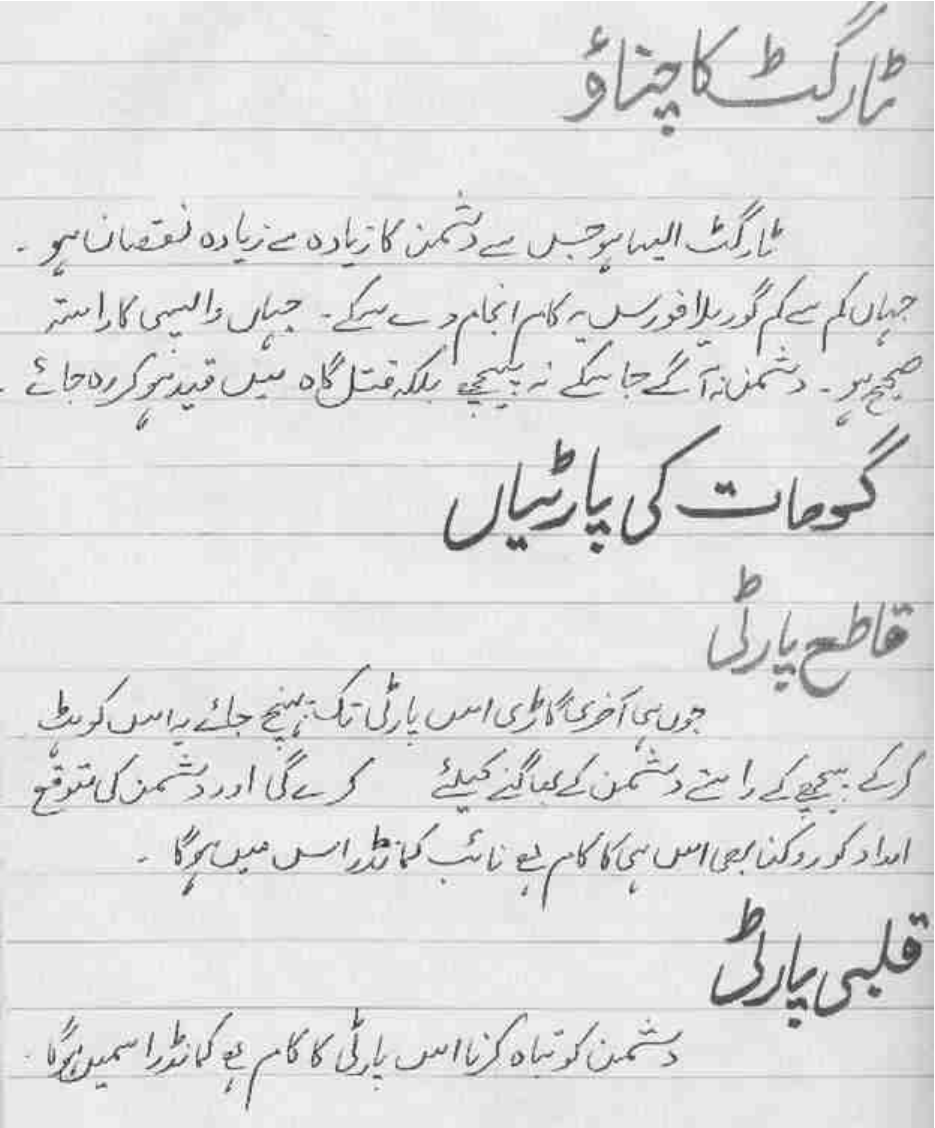 ٹارگٹ کا چناؤ
ٹارگٹ ایسا ہو جس سے دشمن کا زیادہ سے زیادہ نقصان ہو ۔
جہاں کم سے کم گوریلا فورس یہ کام انجام دے سکے ۔ جہاں واپسی کا راستہ
صحیح ہو ۔ دشمن نہ آگے جا سکے نہ پیچھے بلکہ قتل گاہ میں قید ہو کر رہ جائے ۔
گھات کی پارٹیاں
قاطع پارٹی
جوں ہی آخری گاڑی اس پارٹی تک پہنچ جائے یہ اس کو ہٹ
کرکے پیچھے کے راستے دشمن کے بھاگنے کیلئے کرے گی اور دشمن کی متوقع
امداد کو روکنا بھی اس ہی کا کام ہے نائب کمانڈر اس میں ہوگا ۔
قلبی پارٹی
دشمن کو تباہ کرنا اس پارٹی کا کام ہے کمانڈر اسمیں ہوگا ۔